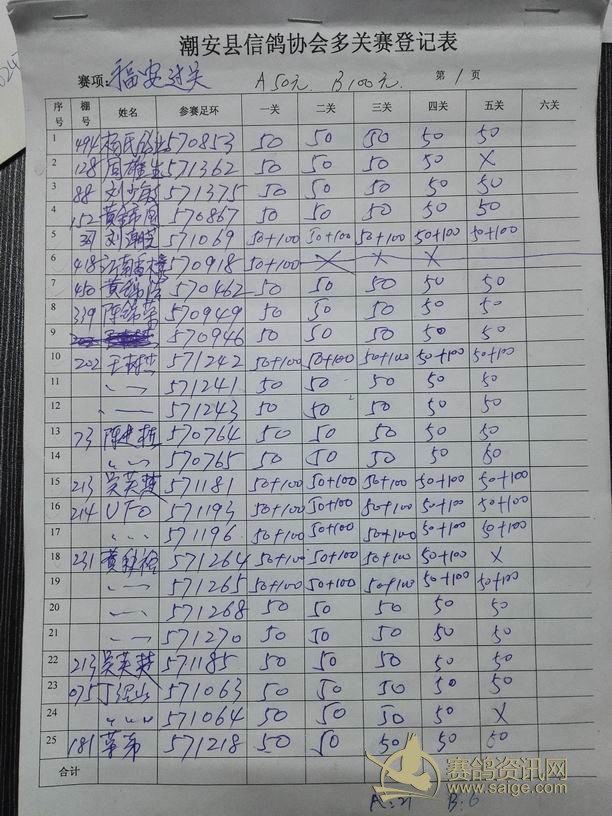 潮安县信鸽协会多关赛登记表
赛项: 福安过关 A 50元 B 100元 第 1 页
序号 棚号 姓名 参赛足环 一关 二关 三关 四关 五关 六关
1 494 570853 50 50 50 50 50
2 128 周雄生 571362 50 50 50 50 ×
3 88 571375 50 50 50 50 50
4 152 570867 50 50 50 50 50
5 571069 50+100 50+100 50+100 50+100 50+100
6 418 570918 50+100 × × ×
7 450 570462 50 50 50 50 50
8 339 陈锦荣 570949 50 50 50 50 50
9 570946 50 50 50 50 50
10 202 571242 50+100 50+100 50+100 50+100 50+100
11 571241 50 50 50 50 50
12 571243 50 50 50 50 50
13 73 570764 50 50 50 50 50
14 570765 50 50 50 50 50
15 213 吴英楚 571181 50+100 50+100 50+100 50+100 50+100
16 214 UFO 571193 50+100 50+100 50+100 50+100 50+100
17 571196 50+100 50+100 50+100 50+100 50+100
18 231 571264 50+100 50+100 50+100 50+100 ×
19 571265 50+100 50+100 50+100 50+100 50+100
20 571268 50 50 50 50 50
21 571270 50 50 50 50 50
22 213 吴英楚 571185 50 50 50 50 50
23 075 571063 50 50 50 50 50
24 571064 50 50 50 50 ×
25 181 571218 50 50 50 50 50
合计
A:21 B:6
赛鸽资讯网
www.saige.com